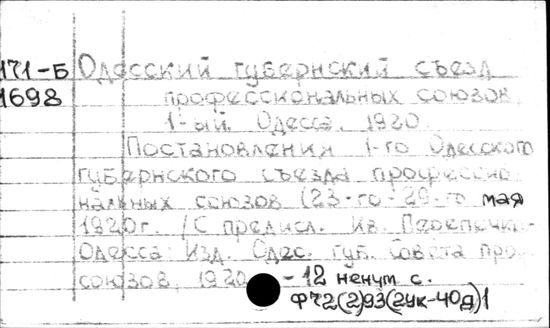 171-Б Одесский губернский съезд
1698 профессиональных союзов,
1-ый. Одесса. 1920.
Постановления 1-го Одесского
губернского съезда профессио-
нальных союзов (23-го-29-го мая
1920г. /С предисл. Ив. Перепечко.
Одесса: Изд. Одес. губ. Совета про.
союзов, 1920. - 12 ненум с.
Ф72(2)93(2Ук-4Од)1